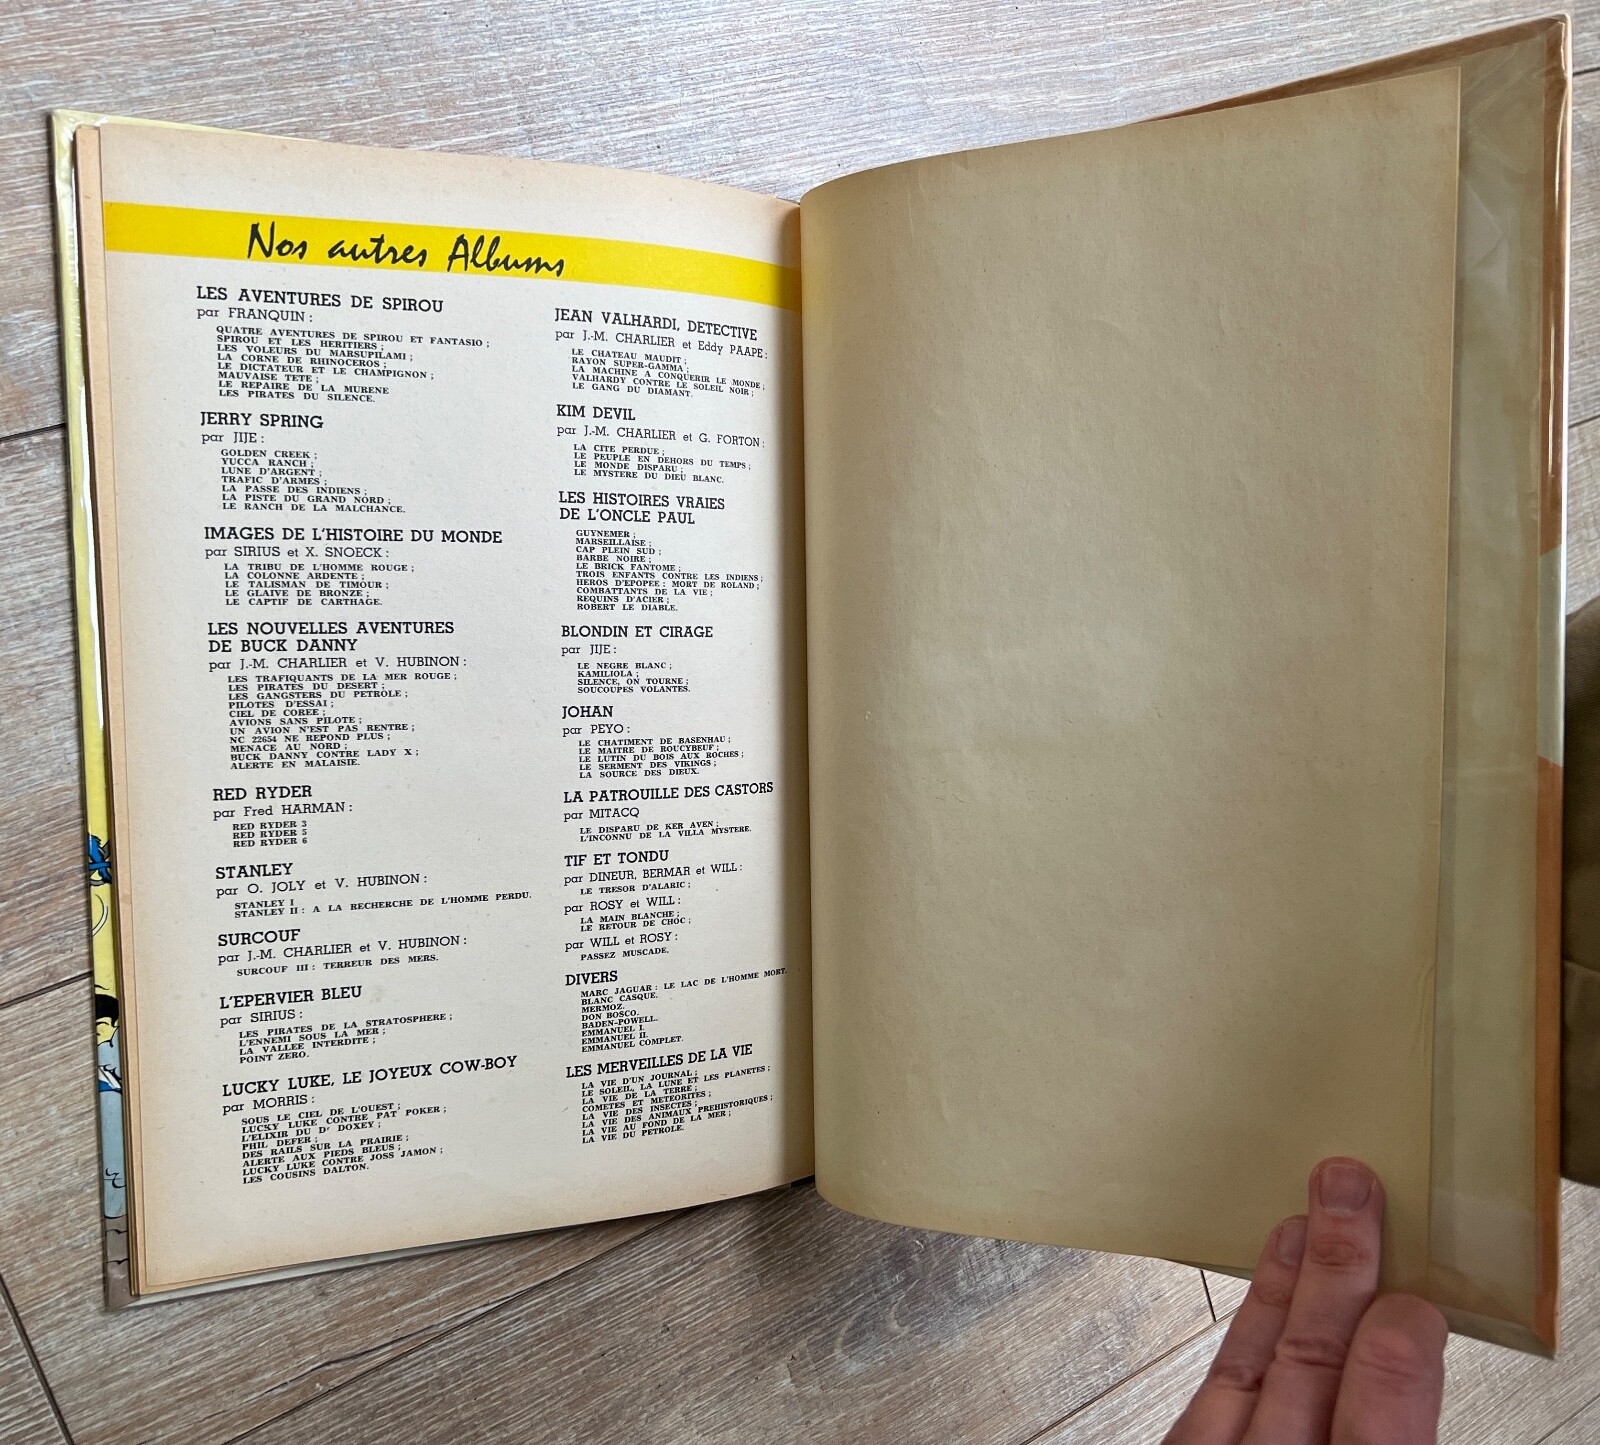 Nos autres Albums
LES AVENTURES DE SPIROU
par FRANQUIN :
QUATRE AVENTURES DE SPIROU ET FANTASIO ;
SPIROU ET LES HERITIERS ;
LES VOLEURS DU MARSUPILAMI ;
LA CORNE DE RHINOCEROS ;
LE DICTATEUR ET LE CHAMPIGNON ;
MAUVAISE TETE ;
LE REPAIRE DE LA MURENE
LES PIRATES DU SILENCE.
JERRY SPRING
par JIJE :
GOLDEN CREEK ;
YUCCA RANCH ;
LUNE D'ARGENT ;
TRAFIC D'ARMES ;
LA PASSE DES INDIENS ;
LA PISTE DU GRAND NORD ;
LE RANCH DE LA MALCHANCE.
IMAGES DE L'HISTOIRE DU MONDE
par SIRIUS et X. SNOECK :
LA TRIBU DE L'HOMME ROUGE ;
LA COLONNE ARDENTE ;
LE TALISMAN DE TIMOUR ;
LE GLAIVE DE BRONZE ;
LE CAPTIF DE CARTHAGE.
LES NOUVELLES AVENTURES
DE BUCK DANNY
par J.-M. CHARLIER et V. HUBINON :
LES TRAFIQUANTS DE LA MER ROUGE ;
LES PIRATES DU DESERT ;
LES GANGSTERS DU PETROLE ;
PILOTES D'ESSAI ;
CIEL DE COREE ;
AVIONS SANS PILOTE ;
UN AVION N'EST PAS RENTRE ;
NC 22654 NE REPOND PLUS ;
MENACE AU NORD ;
BUCK DANNY CONTRE LADY X ;
ALERTE EN MALAISIE.
RED RYDER
par Fred HARMAN :
RED RYDER 3
RED RYDER 5
RED RYDER 6
STANLEY
par O. JOLY et V. HUBINON :
STANLEY I
STANLEY II : A LA RECHERCHE DE L'HOMME PERDU.
SURCOUF
par J.-M. CHARLIER et V. HUBINON :
SURCOUF III : TERREUR DES MERS.
L'EPERVIER BLEU
par SIRIUS :
LES PIRATES DE LA STRATOSPHERE ;
L'ENNEMI SOUS LA MER ;
LA VALLEE INTERDITE ;
POINT ZERO.
LUCKY LUKE, LE JOYEUX COW-BOY
par MORRIS :
SOUS LE CIEL DE L'OUEST ;
LUCKY LUKE CONTRE PAT POKER ;
L'ELIXIR DU Dr DOXEY ;
PHIL DEFER ;
DES RAILS SUR LA PRAIRIE ;
ALERTE AUX PIEDS BLEUS ;
LUCKY LUKE CONTRE JOSS JAMON ;
LES COUSINS DALTON.
JEAN VALHARDI, DETECTIVE
par J.-M. CHARLIER et Eddy PAAPE :
LE CHATEAU MAUDIT ;
RAYON SUPER-GAMMA ;
LA MACHINE A CONQUERIR LE MONDE ;
VALHARDY CONTRE LE SOLEIL NOIR ;
LE GANG DU DIAMANT.
KIM DEVIL
par J.-M. CHARLIER et G. FORTON :
LA CITE PERDUE ;
LE PEUPLE EN DEHORS DU TEMPS ;
LE MONDE DISPARU ;
LE MYSTERE DU DIEU BLANC.
LES HISTOIRES VRAIES
DE L'ONCLE PAUL
GUYNEMER ;
MARSEILLAISE ;
CAP PLEIN SUD ;
BARBE NOIRE ;
LE BRICK FANTOME ;
TROIS ENFANTS CONTRE LES INDIENS ;
HEROS D'EPOPEE : MORT DE ROLAND ;
COMBATTANTS DE LA VIE ;
REQUINS D'ACIER ;
ROBERT LE DIABLE.
BLONDIN ET CIRAGE
par JIJE :
LE NEGRE BLANC ;
KAMILIOLA ;
SILENCE, ON TOURNE ;
SOUCOUPES VOLANTES.
JOHAN
par PEYO :
LE CHATIMENT DE BASENHAU ;
LE MAITRE DE ROUCYBEUF ;
LE LUTIN DU BOIS AUX ROCHES ;
LE SERMENT DES VIKINGS ;
LA SOURCE DES DIEUX.
LA PATROUILLE DES CASTORS
par MITACQ
LE DISPARU DE KER AVEN ;
L'INCONNU DE LA VILLA MYSTERE.
TIF ET TONDU
par DINEUR, BERMAR et WILL :
LE TRESOR D'ALARIC ;
par ROSY et WILL :
LA MAIN BLANCHE ;
LE RETOUR DE CHOC ;
par WILL et ROSY :
PASSEZ MUSCADE.
DIVERS
MARC JAGUAR : LE LAC DE L'HOMME MORT.
BLANC CASQUE.
MERMOZ.
DON BOSCO.
BADEN-POWELL.
EMMANUEL I.
EMMANUEL II.
EMMANUEL COMPLET.
LES MERVEILLES DE LA VIE
LA VIE D'UN JOURNAL ;
LE SOLEIL, LA LUNE ET LES PLANETES ;
LA VIE DE LA TERRE ;
COMETES ET METEORITES ;
LA VIE DES INSECTES ;
LA VIE DES ANIMAUX PREHISTORIQUES ;
LA VIE AU FOND DE LA MER ;
LA VIE DU PETROLE.